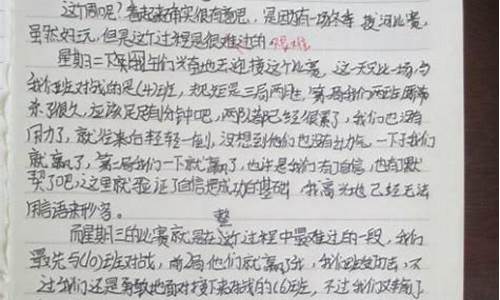 这个周呢?看起来确实很有意思,是因为有一场冬季拔河比赛,
虽然好玩,但是这个过程是很难过的 艰难
星期二下午同学们兴奋地去迎接这个比赛,这一天只比一场,与
我们班对战的是(4)班,规矩是三局两胜,第一局我们两班
来了很久,应该足足有1分钟吧,两队都已经很累了,我们也没有
用力了,就往来向轻轻一倒,没想到他们也没有力气,一下子我们
就赢了,第二局我们一下就赢了,也许是我们有了自信,也有了默
契了吧,这里就验证了自信是成功的基础,我高兴地已经无法
用言语来形容。
整
而星期三的比赛就是在这个过程中最难过的一段,我们
最先与(10)班对战,前2局他们就赢了我,我们班,不
过我们还是勇敢地面对接下来对战的(6)班,不过我们又输了